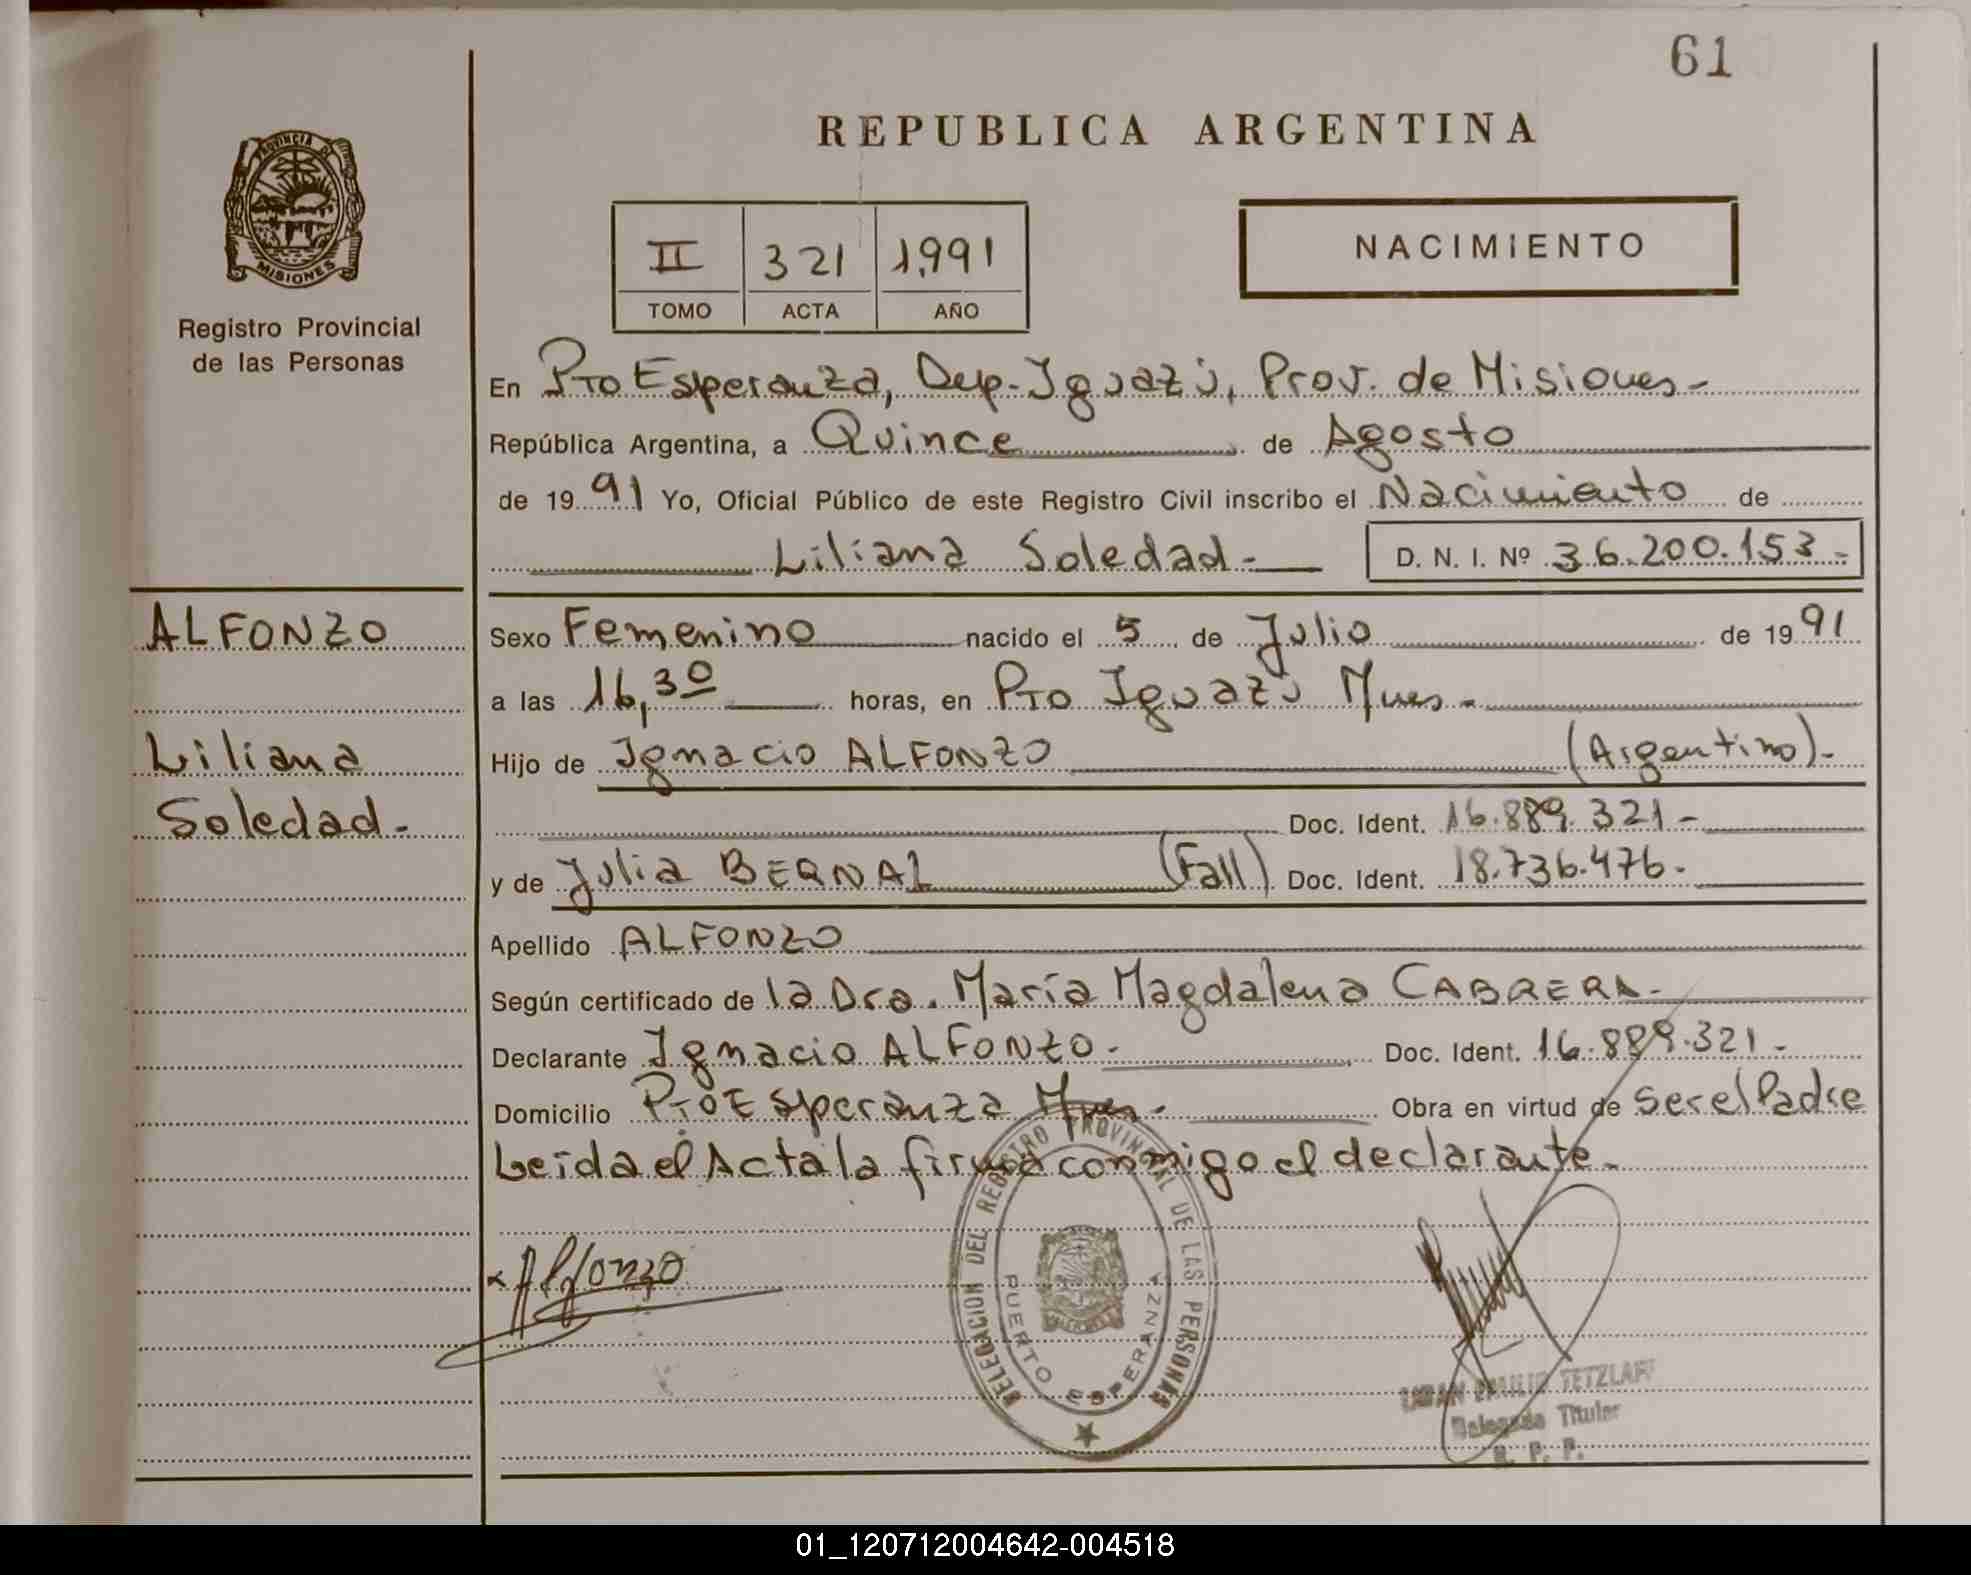 61
REPUBLICA ARGENTINA
PROVINCIA DE
MISIONES
Registro Provincial
de las Personas
II 321 1.991
TOMO ACTA AÑO
NACIMIENTO
En Pto Esperanza, Dep. Iguazú, Prov. de Misiones-
República Argentina, a Quince de Agosto
de 19 91 Yo, Oficial Público de este Registro Civil inscribo el Nacimiento de
Liliana Soledad- D. N. I. Nº 36.200.153-
ALFONZO
Liliana
Soledad-
Sexo Femenino nacido el 5 de Julio de 19 91
a las 16,30 horas, en Pto Iguazú Mnes-
Hijo de Ignacio ALFONZO (Argentino)-
Doc. Ident. 16.889.321-
y de Julia BERNAL (Fall) Doc. Ident. 18.736.476-
Apellido ALFONZO
Según certificado de la Dra. María Magdalena CABRERA-
Declarante Ignacio ALFONZO- Doc. Ident. 16.889.321-
Domicilio Pto Esperanza Mnes- Obra en virtud de ser el Padre
Leída el Acta la firma conmigo el declarante-
Alfonzo
DELEGACION DEL REGISTRO PROVINCIAL DE LAS PERSONAS
PUERTO ESPERANZA
EMILIO TETZLAFF
Delegado Titular
R. P. P.
01_120712004642-004518